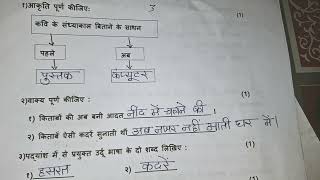 १)आकृति पूर्ण कीजिए: (1)
कवि के संध्याकाल बिताने के साधन
पहले अब
पुस्तक कंप्यूटर
२)वाक्य पूर्ण कीजिए : (1)
१) किताबों की अब बनी आदत नींद में चलने की ।
२) किताबें ऐसी कदरें सुनाती थीं अब नजर नहीं आती घर में।
३)पद्यांश में से प्रयुक्त उर्दू भाषा के दो शब्द लिखिए : (1)
१) हसरत २) कदरें